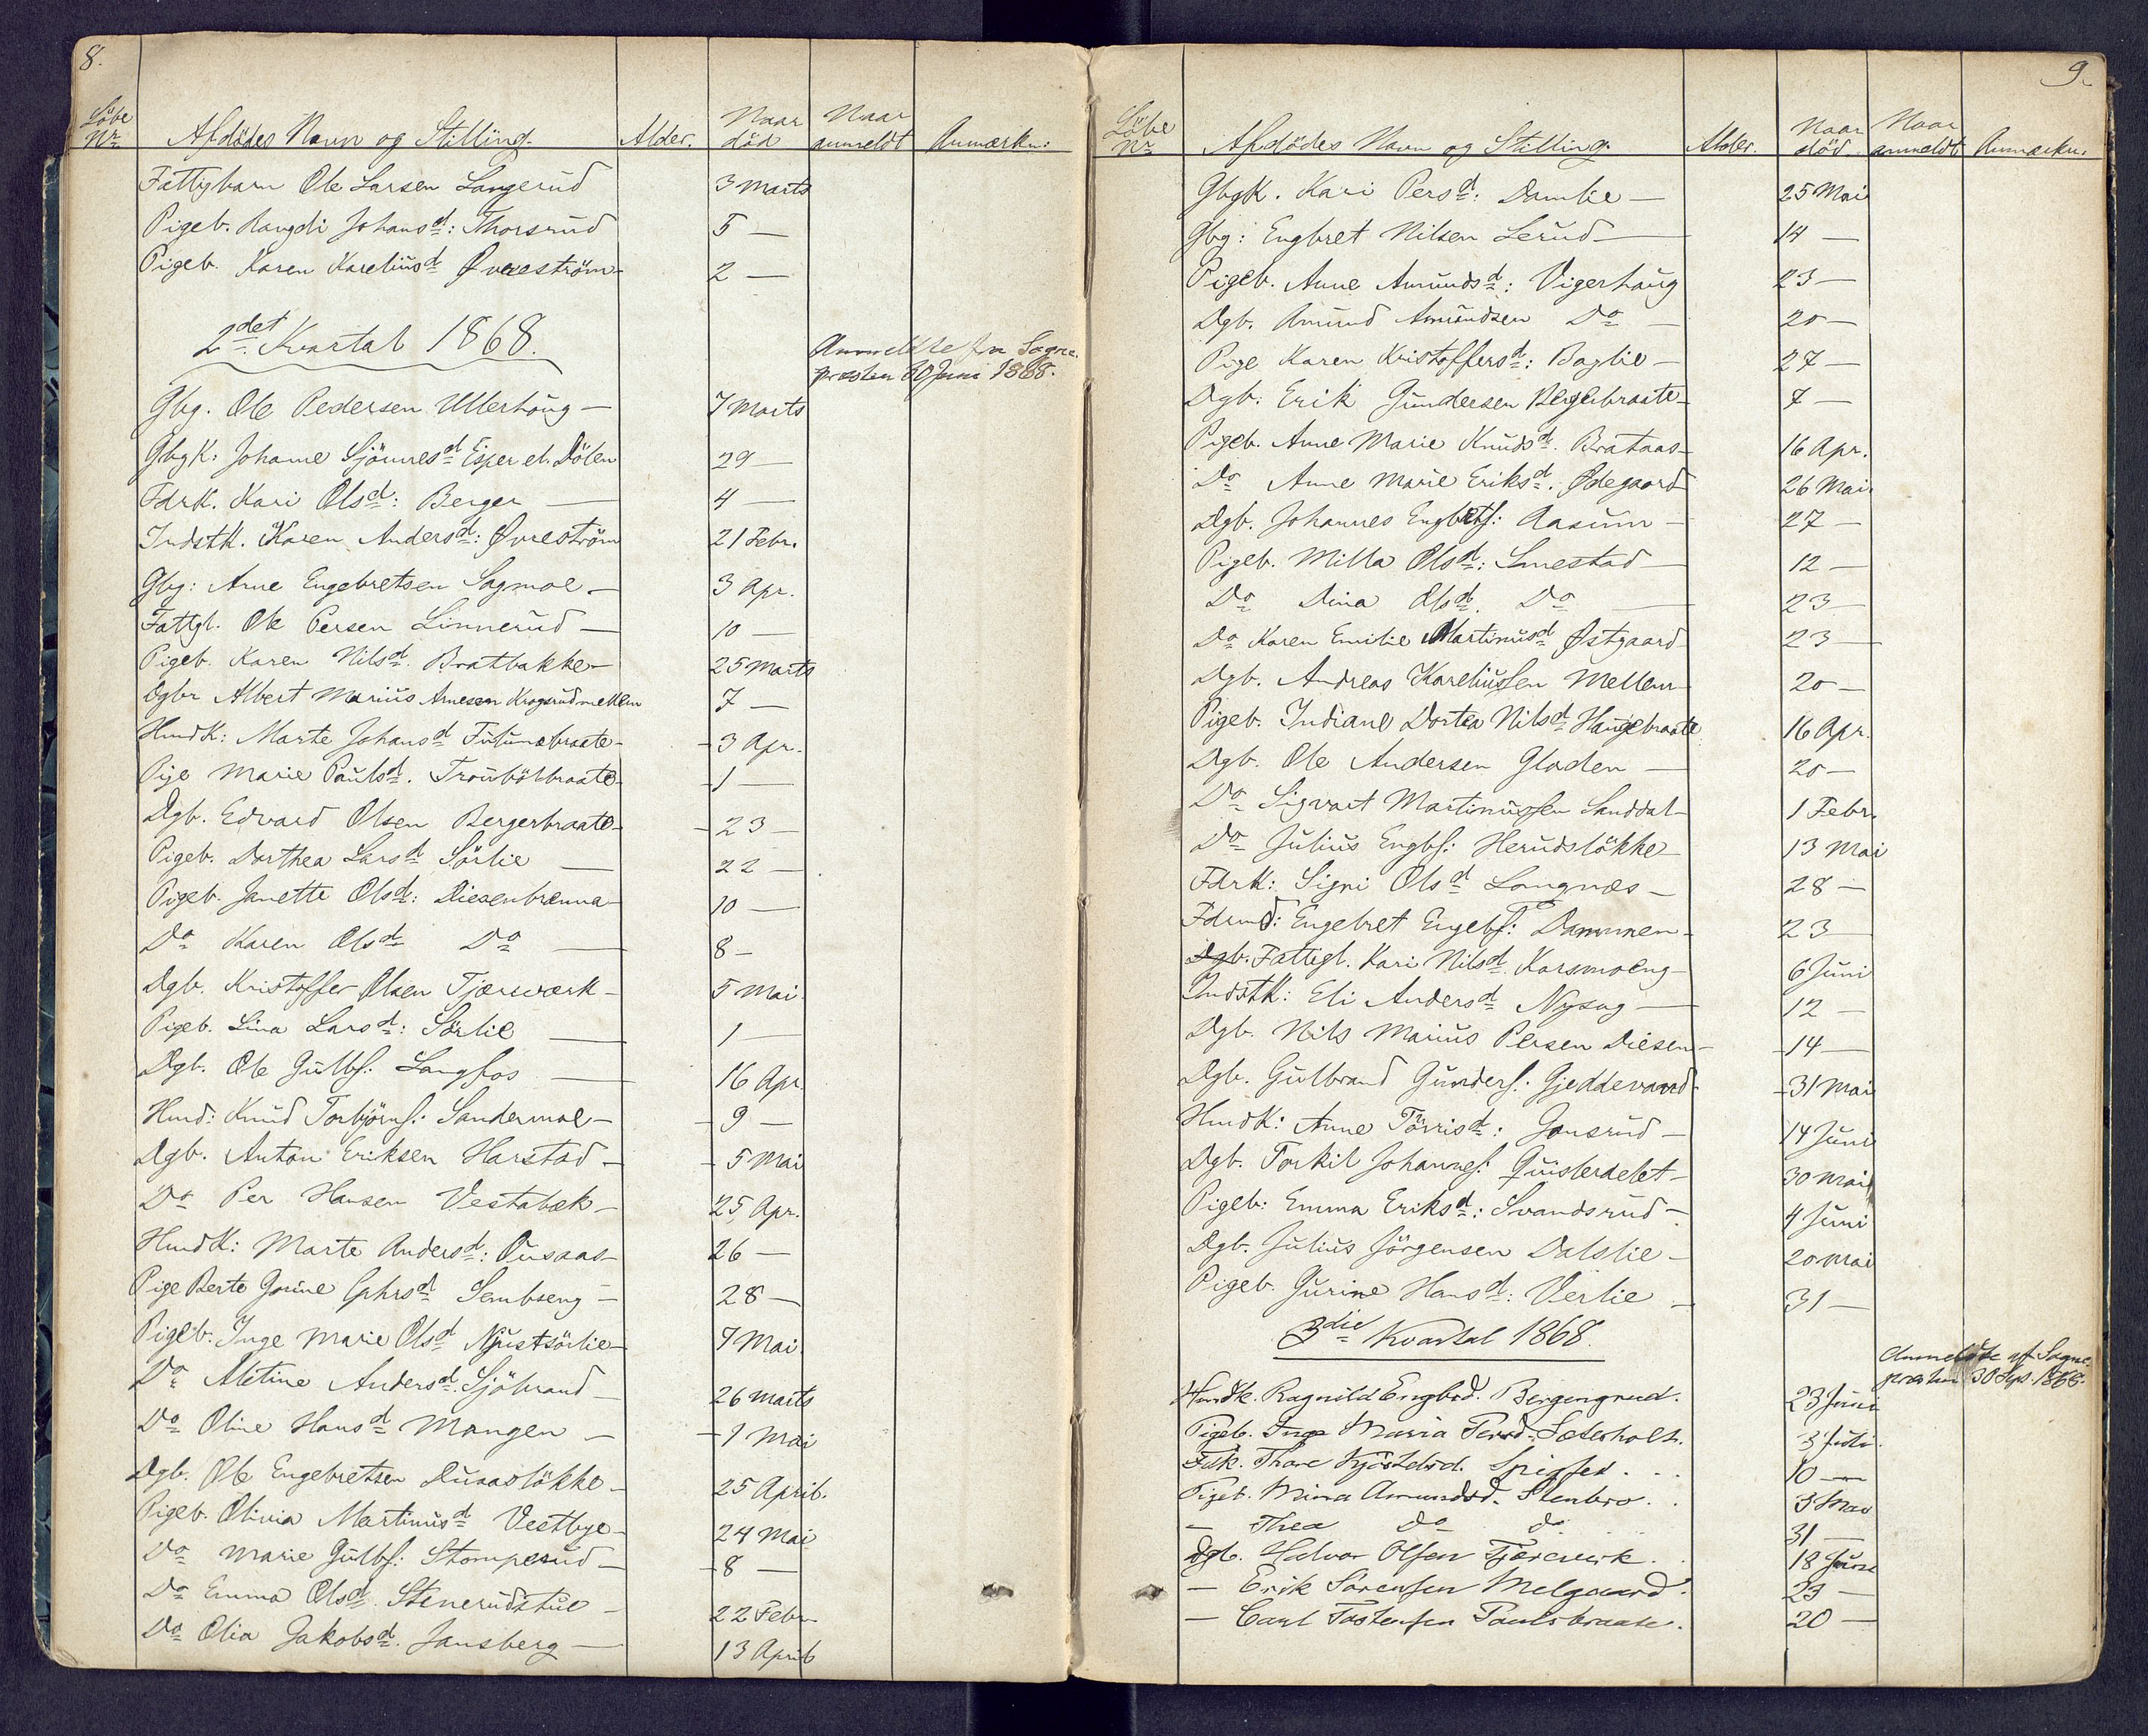 8.
Löbe Nr. Afdödes Navn og Stilling. Alder. Naar död Naar anmeldt Anmærkn:
Fattigbarn Ole Larsen Langerud 3 Marts
Pigeb. Rangdi Johansd: Thorsrud 5 —
Pigeb. Karen Kareliusd Øvreström 2 —
2det Kvartal 1868.
Anmeldte fra Sogne-
præsten 30 Juni 1868.
Gbg. Ole Pedersen Ullerhaug — 7 Marts
GbgK: Johanne Sjönnesd Esper et. Dölen 29 —
FdrK. Kari Olsd: Berger — 4 —
IndstK. Karen Andersd: Øvreström 21 Febr.
Gbg: Arne Engebretsen Sagmoe — 3 Apr.
Fattgl. Ole Persen Linnerud — 10 —
Pigeb. Karen Nilsd. Bratbakke — 25 Marts
Dgbr Albert Marius Arnesen Krogsrudmellem 7 —
HmdK: Marte Johansd Futumsbraate — 3 Apr.
Pige Marie Paulsd. Troubölbraate — 1 —
Dgb. Edvard Olsen Bergerbraate — 23 —
Pigeb. Dorthea Larsd Sörlie — 22 —
Pigeb. Janette Olsd: Diesenbrænna — 10 —
Do Karen Olsd Do — 8 —
Dgb. Kristoffer Olsen Tjærsværk — 5 Mai
Pigeb. Lina Larsd: Sörlie — 1 —
Dgb. Ole Gulbs: Langfos — 16 Apr.
Hmd: Knud Torbjörns: Sandermoe — 9 —
Dgb. Anton Eriksen Harstad — 5 Mai
Do Per Hansen Vestabæk — 25 Apr.
HmdK: Marte Andersd: Ousaas — 26 —
Pige Berte Gorine Cphrsd Sembseng — 28 —
Pigeb. Inge Marie Olsd Njustsörlie — 7 Mai
Do Metine Andersd. Sjöbrand — 26 Marts
Do Oline Hansd Mangen — 1 Mai
Dgb. Ole Engebretsen Dusaslökke — 25 April.
Pigeb. Olivia Martinusd Vestbye — 24 Mai
Do Marie Gulbs: Stomperud — 8 —
Do Emma Olsd. Stenerudstue — 22 Febr.
Do Olia Jakobsd. Jansberg — 13 April
9.
Löbe Nr. Afdödes Navn og Stilling. Alder. Naar död Naar anmeldt Anmærkn.
GbgK. Kari Persd: Damlie — 25 Mai
Gbg: Engbret Nilsen Lerud — 14 —
Pigeb. Anne Amundsd: Vigerhaug 23 —
Dgb. Amund Amundsen Do — 20 —
Pige Karen Kristoffersd: Baglie — 27 —
Dgb: Erik Gundersen Bergerbraate — 7 —
Pigeb. Anne Marie Knudsd. Brataas — 16 Apr.
Do Anne Marie Eriksd. Ødegaard 26 Mai.
Dgb. Johannes Engbrets: Aasum — 27 —
Pigeb. Milla Olsd: Smestad — 12 —
Do Dina Olsd. Do — 23 —
Do Karen Emilie Martinusd Østgaard 23 —
Dgb. Andreas Kareliussen Mellem — 20 —
Pigeb. Indiane Dortea Nilsd Haugebraate 16 Apr.
Dgb. Ole Andersen Gloden — 20 —
Do Sigvart Martinussen Sanddal — 1 Febr.
Do Julius Engbs: Herudslökke 13 Mai
FdrK: Signi Olsd Langnæs — 28 —
Fdrmd: Engebret Engebs: Dammen — 23 —
Dgb. Fattigl. Kari Nilsd. Korsmoeng — 6 Juni
IndstK: Eli Andersd Nysag — 12 —
Dgb. Nils Marius Persen Diesen — 14 —
Dgb. Gulbrand Gunders: Gjeddevand — 31 Mai
HmdK: Anne Törrisd: Jonsrud — 14 Juni
Dgb. Torkil Johannes: Quisterdelet — 30 Mai
Pigeb: Emma Eriksd: Svandsrud — 4 Juni
Dgb. Julius Jörgensen Dalslie — 20 Mai
Pigeb. Gurine Hansd: Verlie — 31 —
3die Kvartal 1868.
Anmeldte af Sogne-
præsten 30 Sept. 1868.
Hmdk. Ragnild Engbrd. Bergengrud. 23 Juni
Pigeb. Inge Maria Persd. Sæterholt. 3 Juli.
Fdk. Thore Kjöstelsd. . . . 10 —
Pigeb. Mina Amundsd. Stenbro. . 3 Mai
— Thea do do 31 —
Dgb. Halvor Olsen Tjærewerk. . 18 Juni
— Erik Sörensen Melgaard. 23 —
— Carl Tostensen Paulsbraate. 20 —